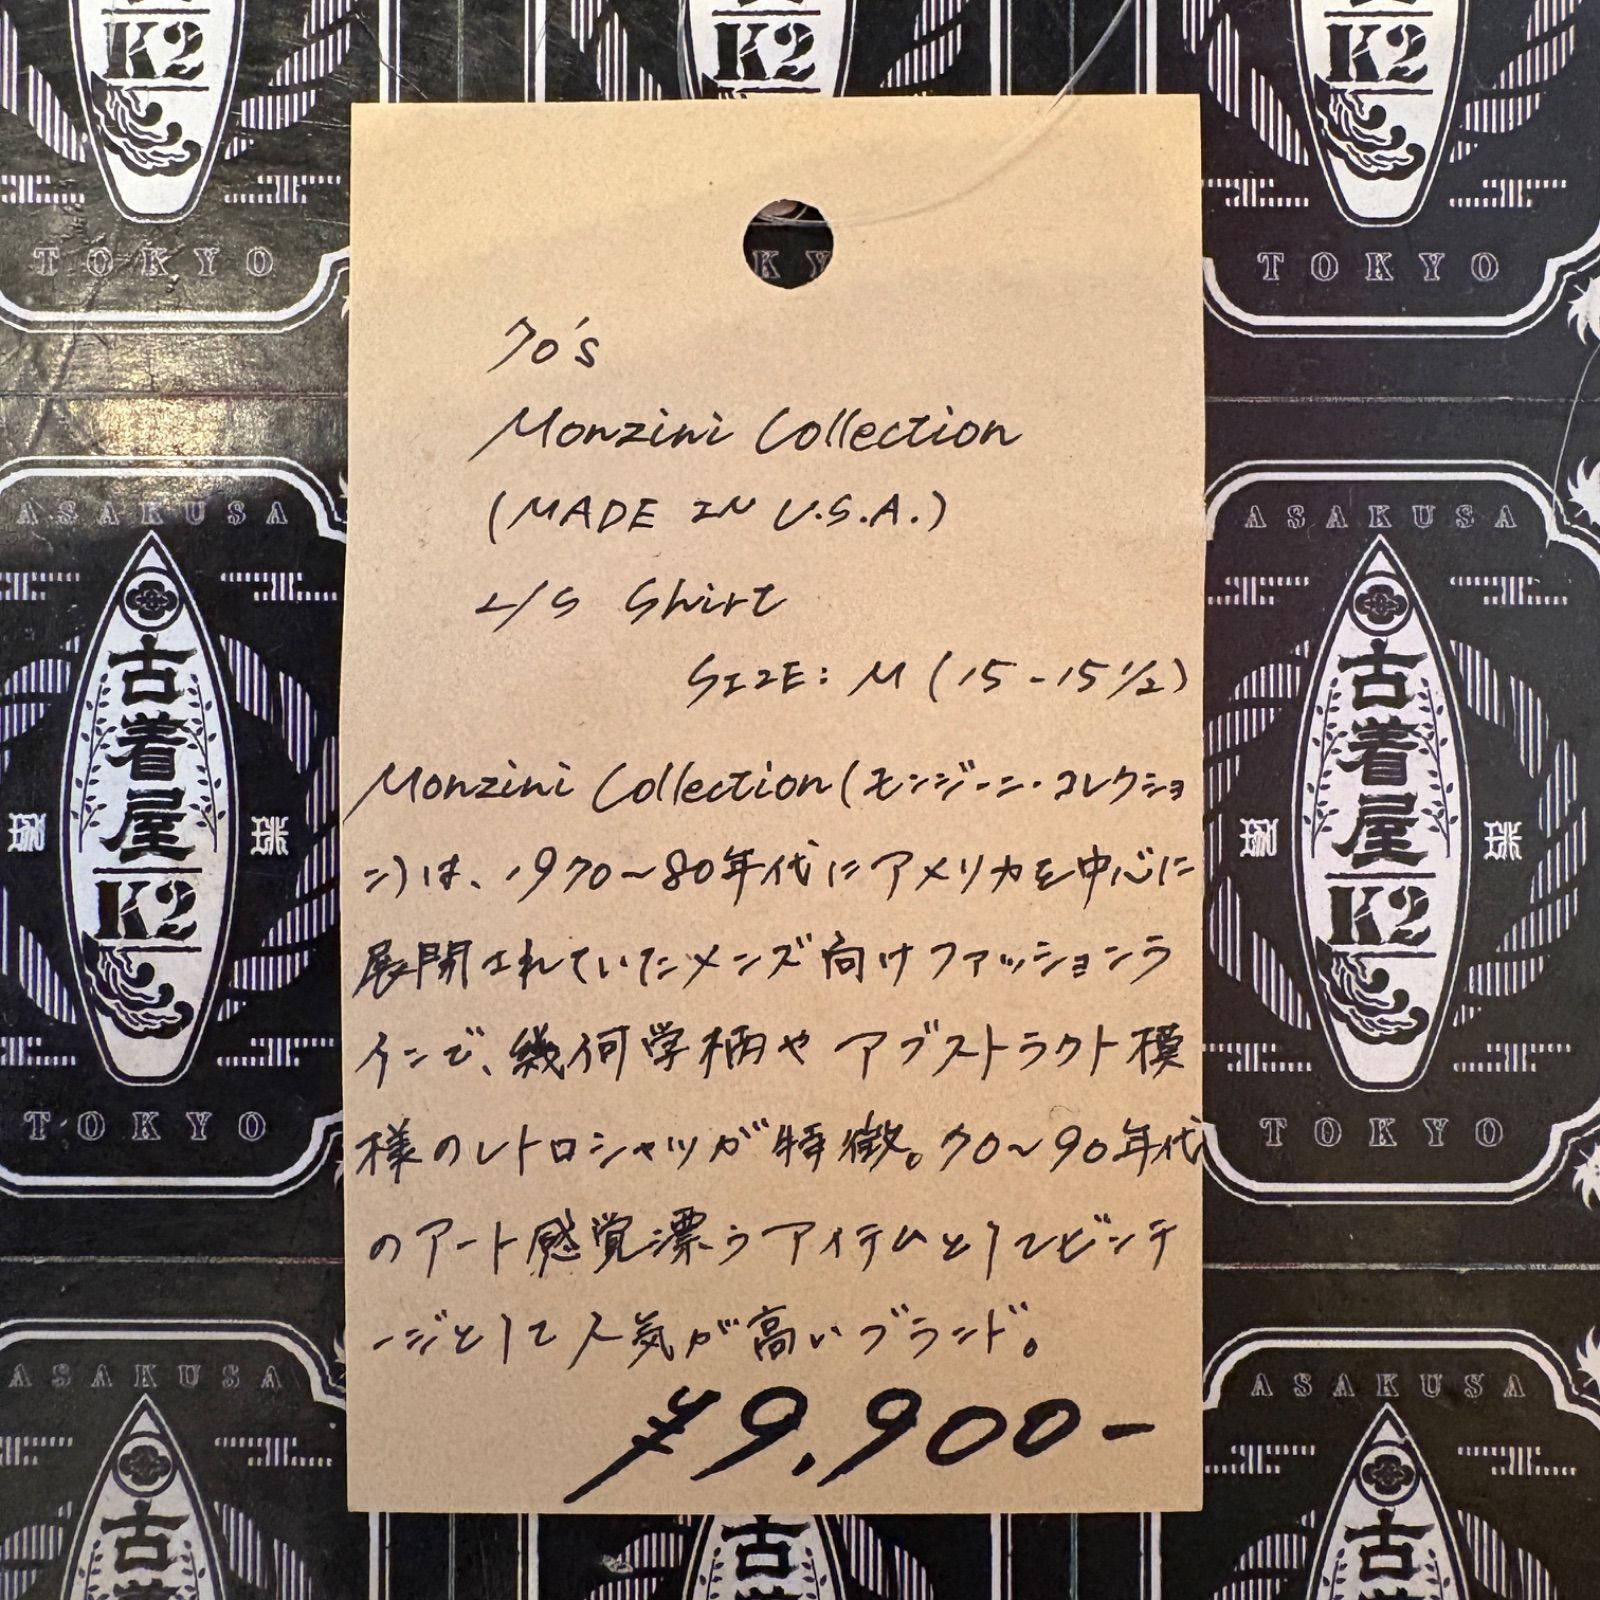 70's
Monzini Collection
(MADE IN U.S.A.)
L/S Shirt
SIZE: M (15-15 1/2)
Monzini Collection(モンジーニ・コレクショ
ン)は、1970〜80年代にアメリカを中心に
展開されていたメンズ向けファッションラ
インで、幾何学柄や アブストラクト模
様のレトロシャツが特徴。70〜90年代
のアート感覚漂うアイテムとしてビンテ
ージとして人気が高いブランド。
¥9,900-
K2
TOKYO
K2
K2
TOKYO
KY
ASAKUSA
古着屋
K2
TOKYO
ASAKUSA
古着屋
K2
TOKYO
ASAKUSA
古着
ASAKUSA
古
古